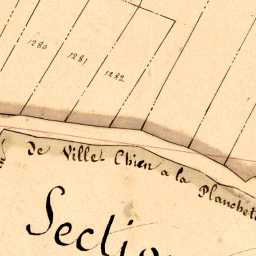 1280
1281
1282
De Ville Chien a la Planchet
Section